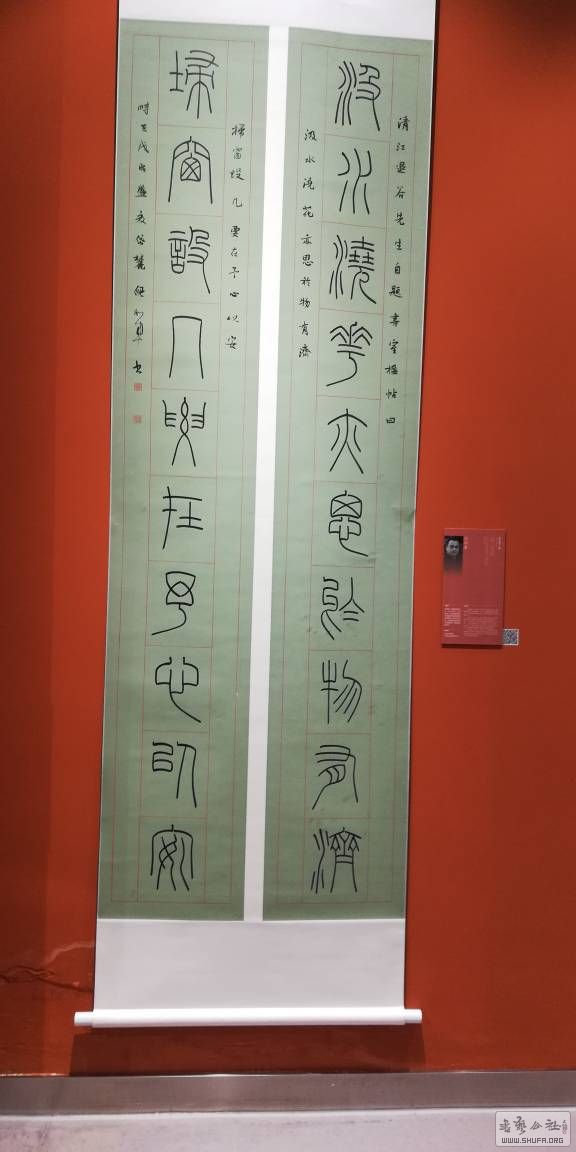 清江退谷先生自題書室楹帖曰
汲水澆花亦思於物有濟
汲水澆花亦思於物有濟
掃窗設几要在予心以安
埽窗設几要在予心以安
時 戌 盛夏岱麓 書
书艺公社
WWW.SHUFA.ORG